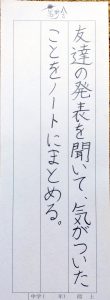 友達の発表を聞いて、気がついた
ことをノートにまとめる。